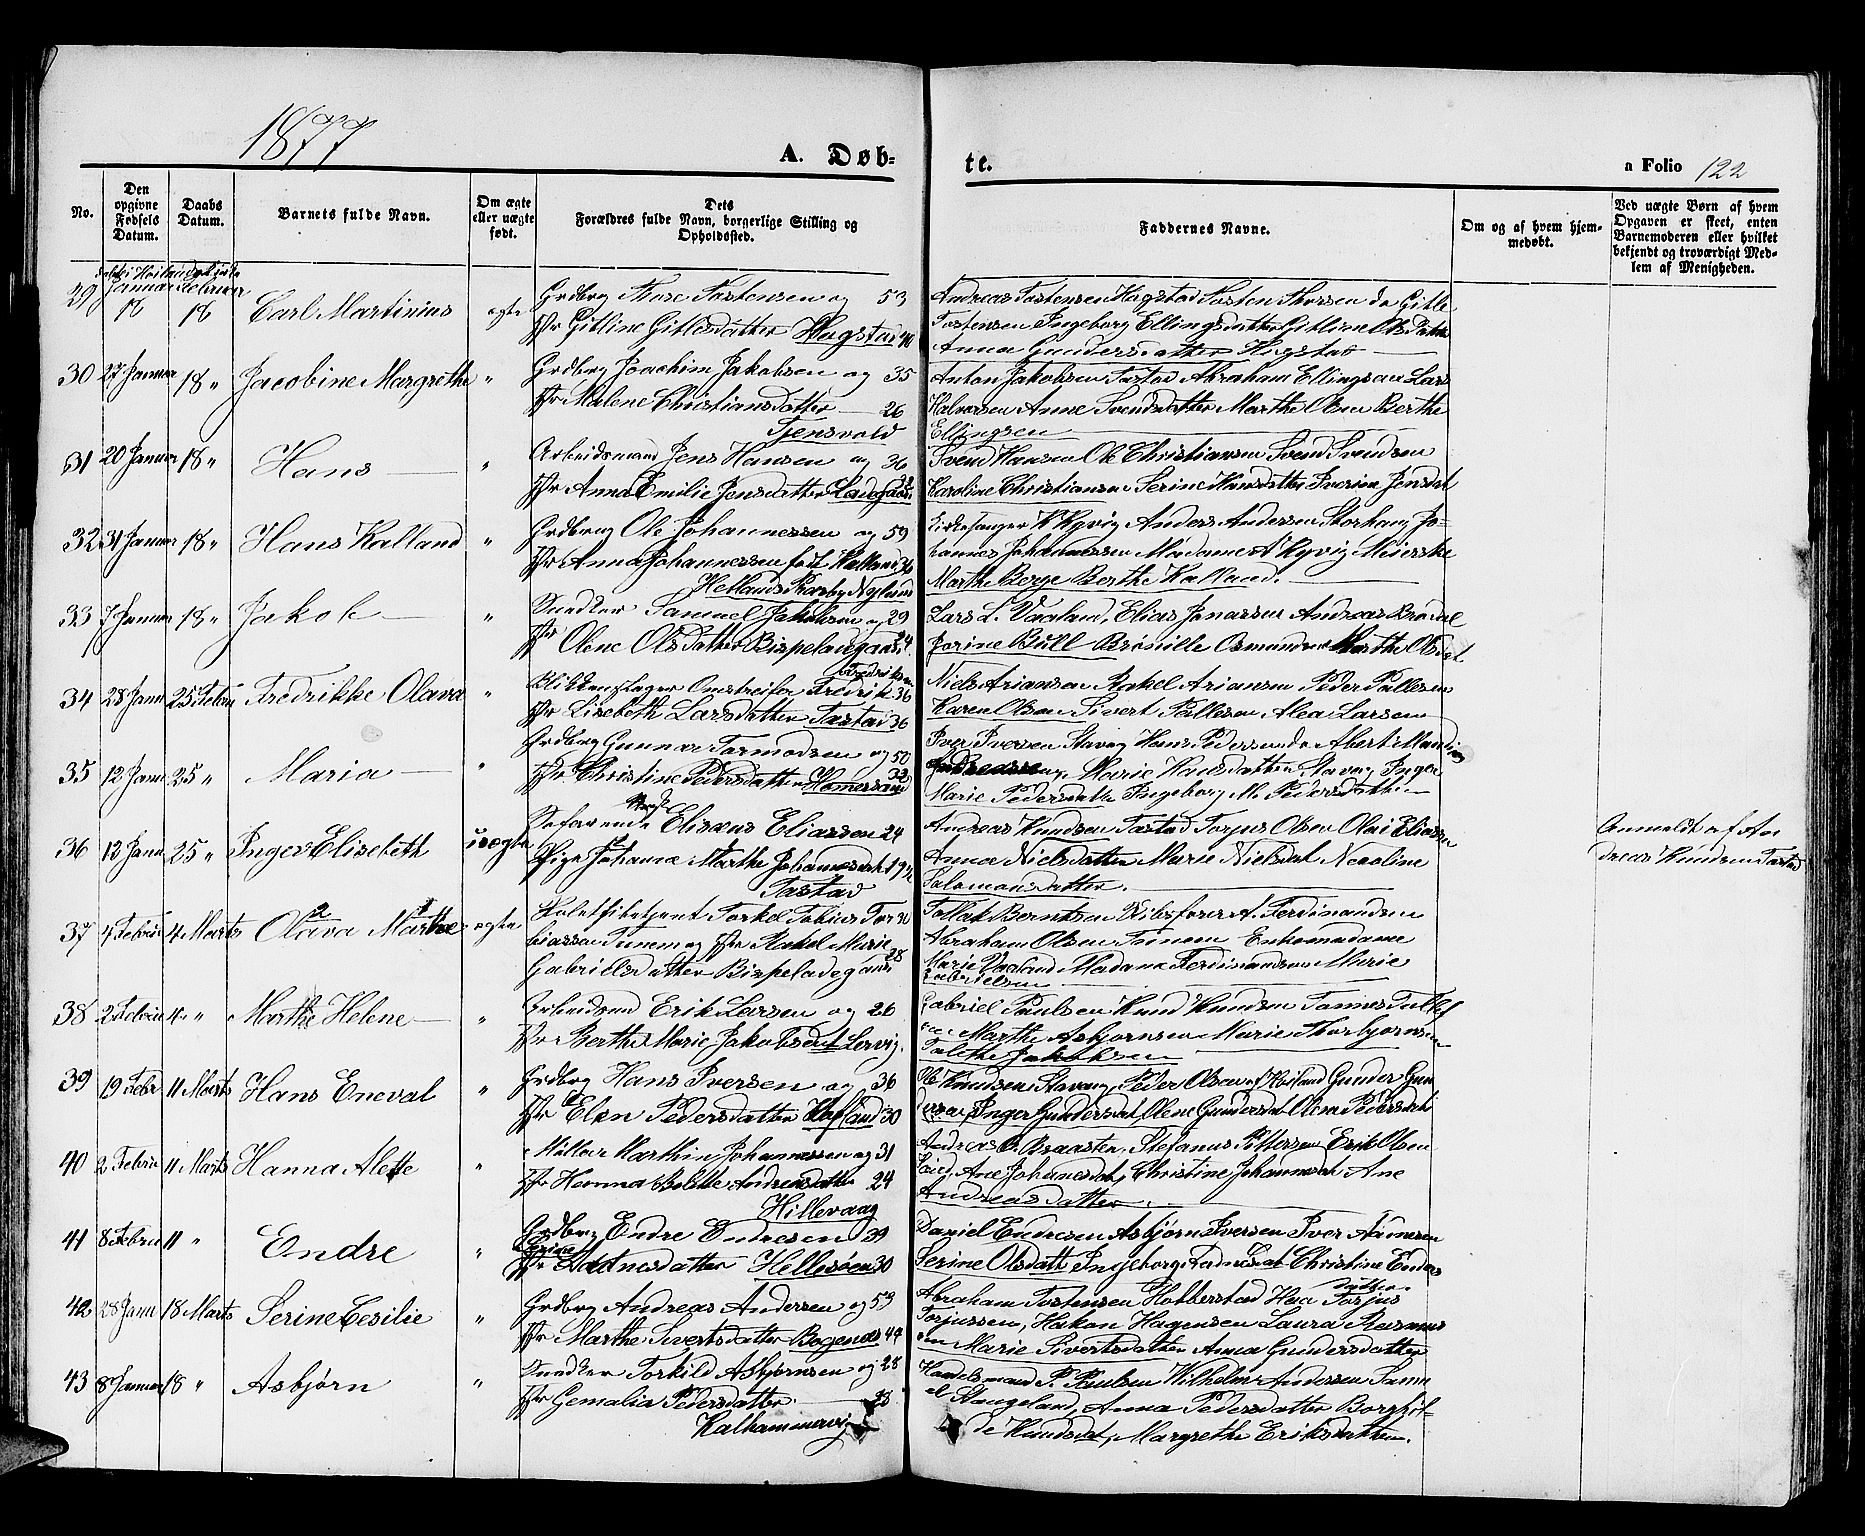 1877
A. Døb-
te.
a Folio 122
No.
Den opgivne Fødsels Datum.
Daabs Datum.
Barnets fulde Navn.
Om ægte eller uægte født.
Dets Forældres fulde Navn, borgerlige Stilling og Opholdssted.
Faddernes Navne.
Om og af hvem hjem-
medøbt.
Ved uægte Børn af hvem
Opgaven er skeet, enten
Barnemoderen eller hvilket
bekjendt og troværdigt Med-
lem af Menigheden.
29 Januar 18 Februar 18 Carl Martinius ægte Grdbrg Thore Tostensen og 53
Hr Gitline Gitlesdatter Hogstad 40
Andreas Tostensen Hogstad Tosten Thorsen do Gitle
Tostensen Ingeborg Ellingsdatter Gitline
Anna Gundersdatter Hogstad
30 27 Januar 18 " Jacobine Margrethe " Grdbrg Joachim Jakobsen og 35
Hr Malene Christiansdatter 26
Tjensvold
Anton Jakobsen Tastad Abraham Ellingsen Lars
Halvorsen Anne Svendsdatter Marthe Olsen Berthe
Ellingsen
31 20 Januar 18 " Hans " Arbeidsmand Jens Hansen og 36
Hr Anna Emilie Jensdatter
Svend Hansen Ole Christiansen Svend Svendsen
Caroline Christiansen Serine Hansdatter Iverine Jensdat
32 31 Januar 18 " Hans Kalland " Grdbrug Ole Johannessen og 59
Hr Anna Johannessen født Kalland 36
Hetlands Præsteg Nylund
Kirkesanger K Kyvig Anders Andersen Storhaug Jo-
hannes Johannessen Madame A Kyvig Meierske
Marthe Berge Berthe Kalland.
33 7 Januar 18 " Jakob " Snedker Samuel Jakobsen og 29
Hr Olene Olsdatter Bispeladegaard 24
Lars L. Vaaland, Elias Jonassen Andreas Brødal
Jorine Bull Brønille Osmundsen Marthe Olsdat
34 28 Janu 25 Febru Fredrikke Olava " Blikkenslager Omstreifer Fredrik Fredriksen 36
Hr Lisebeth Larsdatter Tastad 36
Niels Ariansen Rakel Ariansen Peder Pallesen
Karen Olsen Sivert Pallesen Alea Larsen
35 12 Janu 25 " Maria " Grdbrg Gunnar Tormodsen og 50
Hr Christine Pedersdatter Hamersand 33
Iver Iversen Stavng Hans Pedersen do Abert Mauding
Marie Hansdatter Stavng Inger
Marie Pedersdatte Ingeborg M. Pedersdatter
36 13 Janu 25 " Inger Elisebeth uægte Søfarende Elisæus Eliassen 24
Pige Johanne Marthe Johannesdat 19½
Tastad
Andreas Knudsen Tastad Torjus Olsen Olai Eliassen
Anna Nielsdatter Marie Nielsdat Neoline
Salomonsdatter.
Anmeldt af An
dreas Knudsen Tastad
37 4 Februar 4 Marts Olava Marthe ægte Toletfibetjent Torkel Tobias Tor 30
biassen Tunem og Hr Rakel Marie
Gabrielsdatter Bispeladegaard 28
Tollak Berntsen Skibsfører A. Ferdinandsen
Abraham Olsen Tunem Enkemadame
Marie Vaaland Madame Ferdinandsen Marie
Gabrielsen
38 2 Febru 4 " Marthe Helene " Arbeidsmd Erik Larsen og 26
Hr Berthe Marie Jakobsdat Lervig.
Gabriel Paulsen Knud Knudsen Tønnes Tollef
sen Marthe Asbjørnsen Marie Thorbjørnsen
Talethe Jakobsen
39 19 Febr 11 Marts Hans Eneval " Grdbrg Hans Iversen og 36
Hr Elen Pedersdatter Høiland 30
Ole Knudsen Stavng, Peder Olsen af Høiland Gunder Gun
dersen, Inger Gundersdat, Olene Gundersdat Olene Pedersdat
40 2 Febru 11 Marts Hanna Alette " Møller Marthin Johannessen og 31
Hr Hanna Bolette Andreasdatter 24
Hillevaag
Andreas O. Braasten, Stefanus Pettersen Erik Olsen
Ane Johanesdat, Christine Johannesdat Ane
Andreasdatter.
41 8 Febru 11 " Endre " Grdbrg Endre Endresen 39
Hr Serine Aadnesdatter Hellesøen 30
Daniel Endresen Asbjørn Iversen Iver Aanesen
Serine Olsdatt Ingeborg Aadnesdat Christine Endres
42 28 Janu 18 Marts Serine Cesilie " Grdbrg Andreas Andersen og 59
Hr Marthe Sivertsdatter Bogenes 44
Abraham Tostensen Hobberstad Torjus
Torjussen, Hakon Hagensen Laura Rasmus
sen Marie Sivertsdatter Anna Gundersdatter
43 8 Januar 18 " Asbjørn " Snedker Torkild Asbjørnsen og 28
Hr Gemalia Pedersdatter 23
Kalhammervig
Handelsmand P. Paulsen Wilhelm Andersen Samu
el Stangeland, Anna Pedersdatter Borghil-
de Knudsdat, Margrethe Eriksdatter.